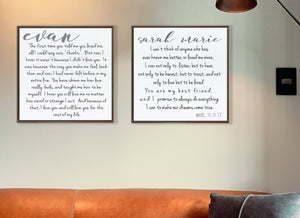 evan
The first time you told me you loved me,
all I could say was, "thanks". But now, I
swear it wasn't because I didn't love you. It
was because the way you make me feel, back
then and now, I had never felt before in my
entire life. You have shown me how love
really feels, and taught me how to be
myself. I hope you will love me no matter
how weird or strange I act. And because of
that, I love you and will love you for the
rest of my life.
sarah marie
I can't think of anyone who has
ever known me better, or loved me more.
I vow not only to listen, but to hear,
not only to be honest, but to trust, and not
only to live but to be lived.
You are my best friend,
and I promise to always do everything
I can to make our dreams come true.
est. 11.11.17